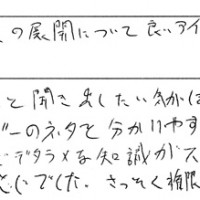 の展開について良いアイ
と聞きましたい気がは
ーのネタと分かりやす
デタラメな知識がス
じでした。さっそく権限